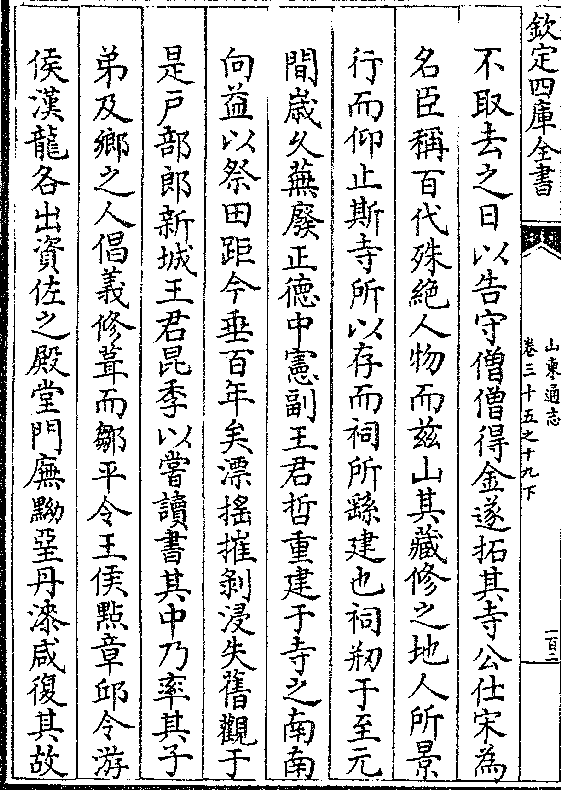 欽定四庫全書
山東通志
卷三十五之十九下
一百二
不取去之日以告守僧僧得金遂拓其寺公仕宋為
名臣稱百代殊絶人物而兹山其藏修之地人所景
行而仰止斯寺所以存而祠所繇建也祠刱于至元
間歳久蕪廢正徳中憲副王君哲重建于寺之南南
向益以祭田距今垂百年矣漂搖摧剝浸失舊觀于
是戸部郎新城王君昆季以嘗讀書其中乃率其子
弟及鄉之人倡義修葺而鄒平令王侯㸃章邱令游
侯漢龍各出資佐之殿堂門廡黝堊丹漆咸復其故